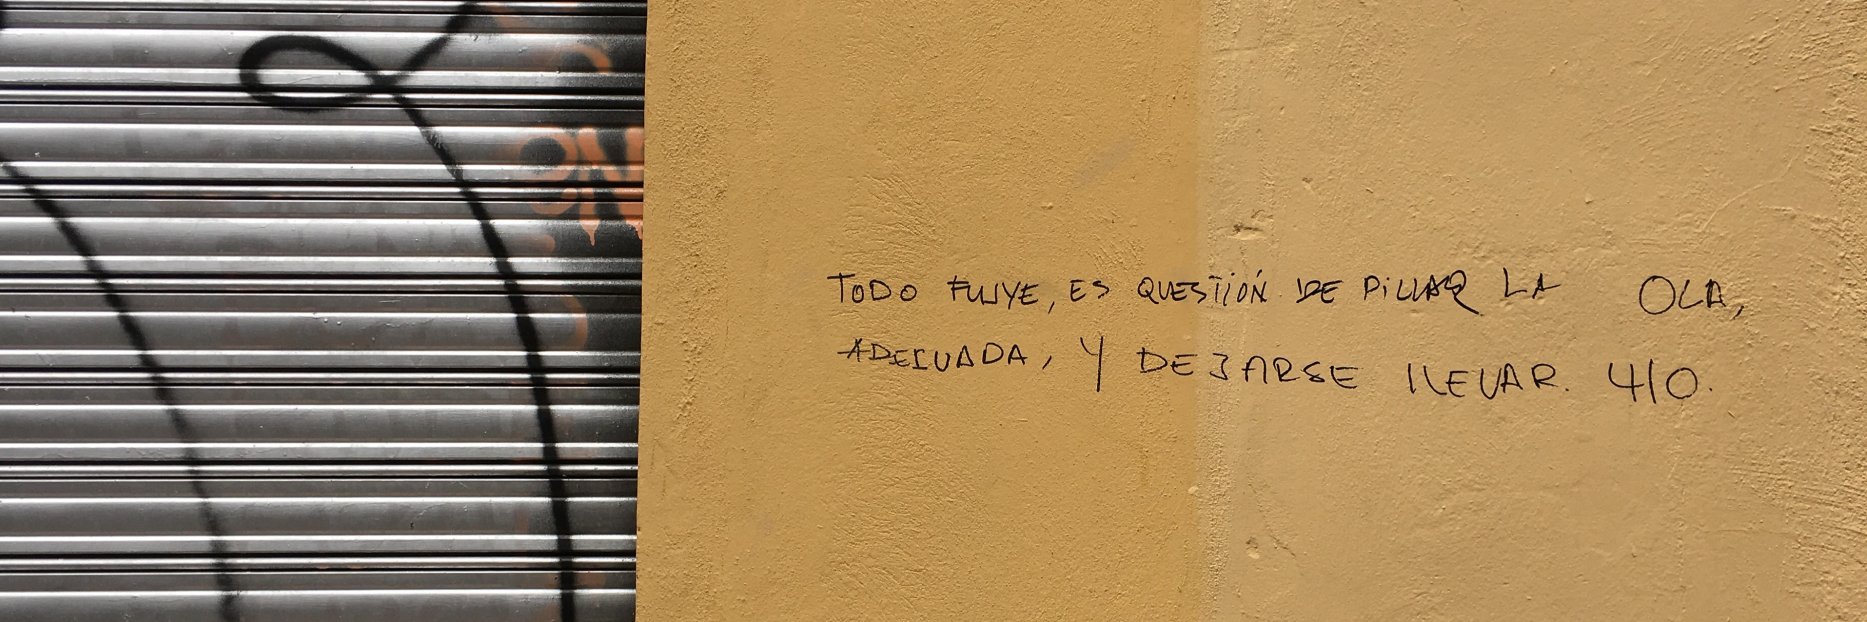 TODO FUIYE, ES QUESTIÓN DE PILLAR LA OLA,
ADECUADA, Y DEJARSE LLEVAR. 410.